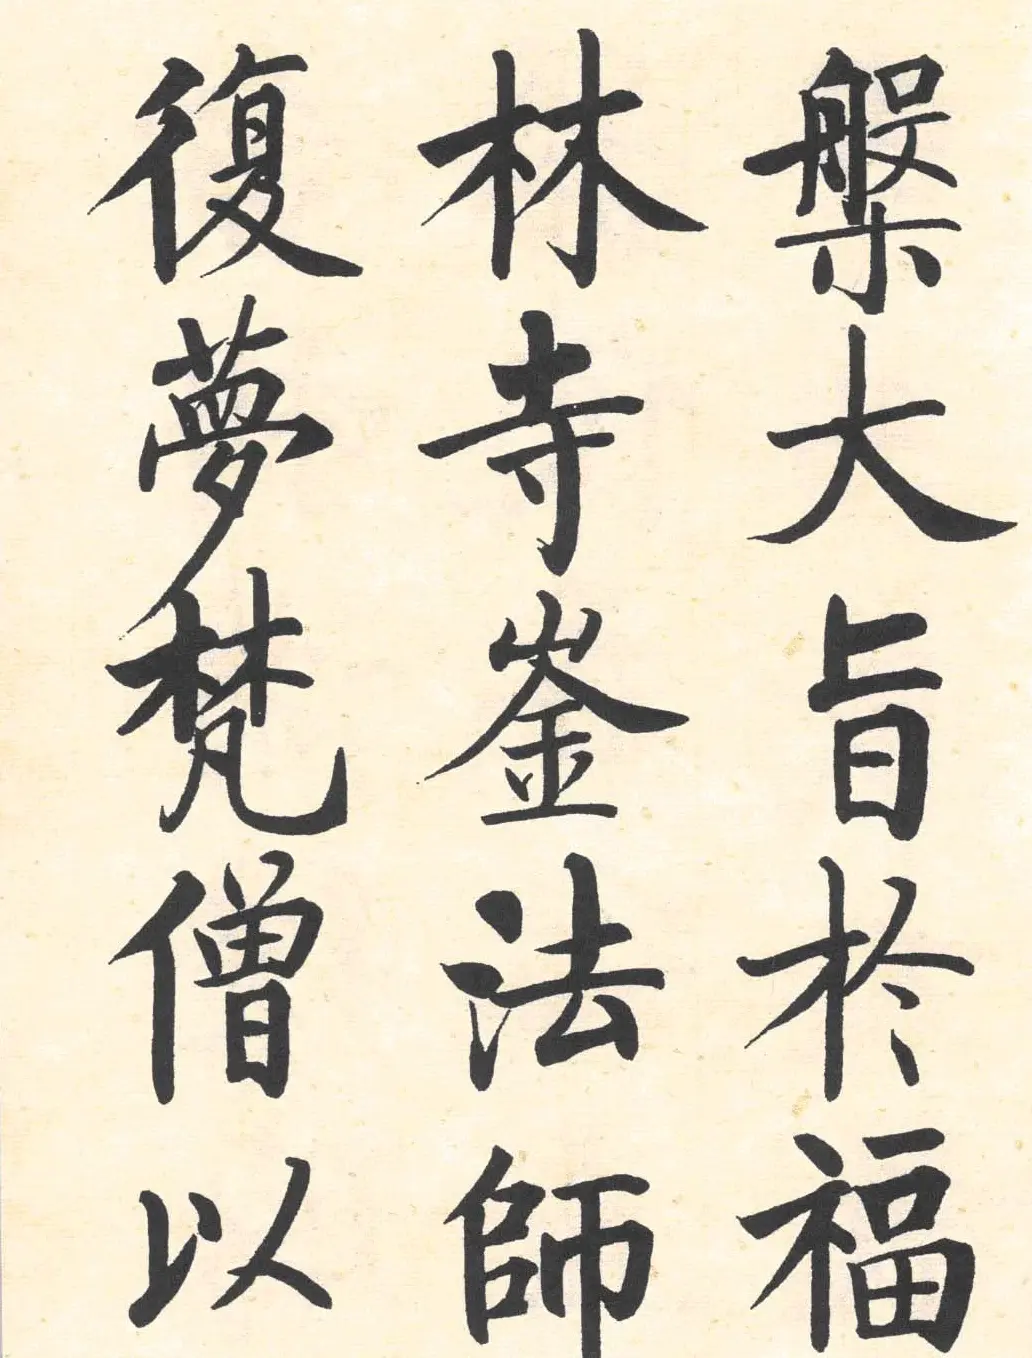 槃大旨於福
林寺崟法師
復夢梵僧以